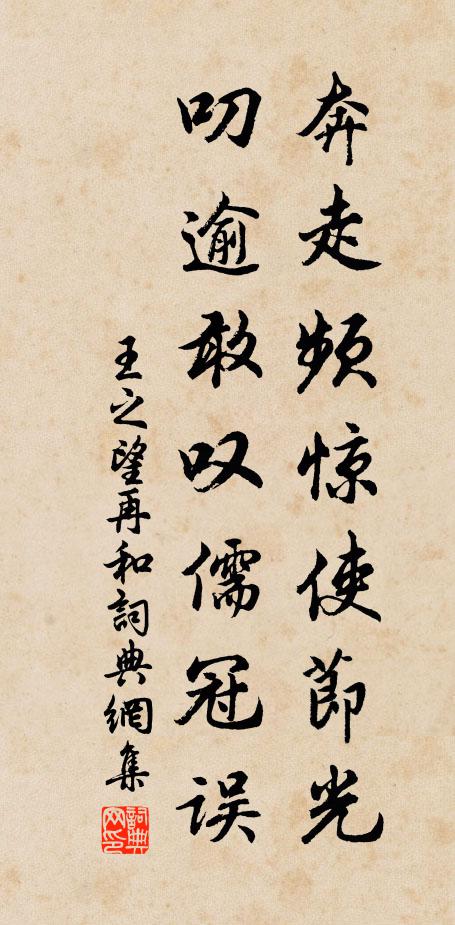 奔走频惊使节光
叨逾敢叹儒冠误
王之望再和詞典網集
詞典网印